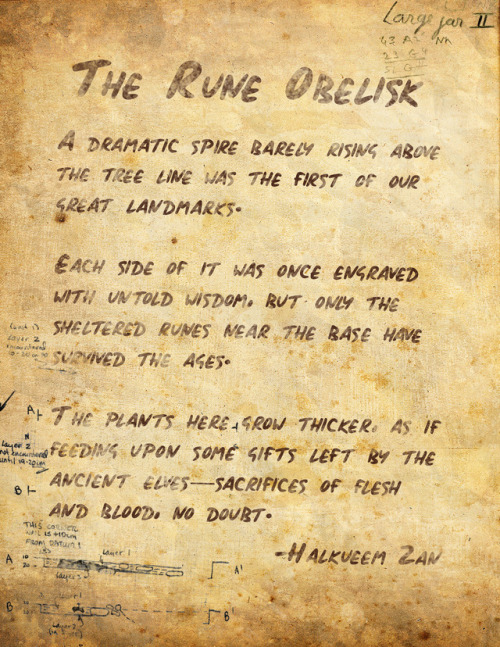 Large jar II
THE RUNE OBELISK
A DRAMATIC SPIRE BARELY RISING ABOVE
THE TREE LINE WAS THE FIRST OF OUR
GREAT LANDMARKS.
EACH SIDE OF IT WAS ONCE ENGRAVED
WITH UNTOLD WISDOM. BUT ONLY THE
SHELTERED RUNES NEAR THE BASE HAVE
SURVIVED THE AGES.
Layer 2
THE PLANTS HERE GROW THICKER. AS IF
FEEDING UPON SOME GIFTS LEFT BY THE
ANCIENT ELVES—SACRIFICES OF FLESH
AND BLOOD. NO DOUBT.
-HALKUEEM ZAN
A
Layer 2
not encountered
until 19-20cm
B
THIS CORNER
FROM DATUM
A
10
20
Layer 1
Layer 2
A'
B
B'